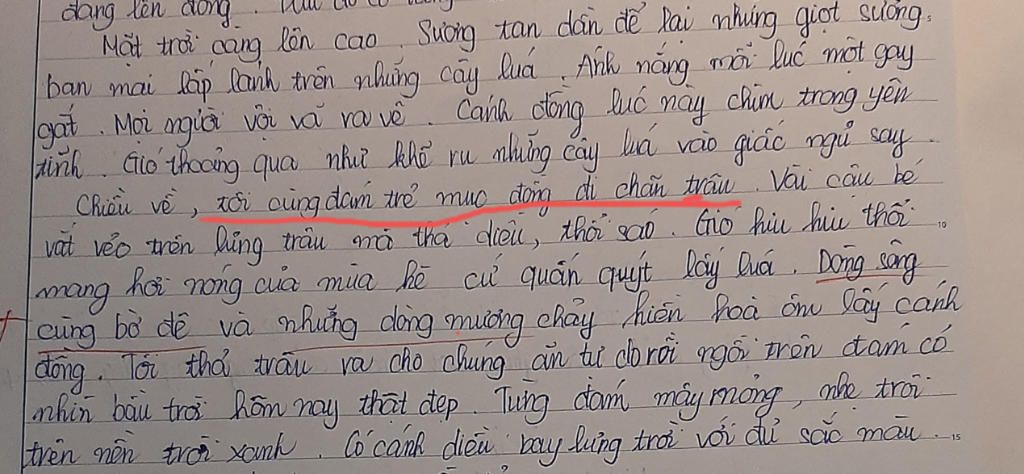 đang lên đòng.
Mặt trời càng lên cao. Sương tan dần để lại những giọt sương
ban mai lấp lánh trên những cây luá. Ánh nắng mỗi lúc một gay
gắt. Mọi người vội vã ra về. Cánh đồng lúc này chìm trong yên
tĩnh. Gió thoảng qua như khẽ ru những cây luá vào giấc ngủ say.
Chiều về, tôi cùng đám trẻ mục đồng đi chăn trâu. Vài cậu bé
vắt vẻo trên lưng trâu mà thả diều, thổi sáo. Gió hiu hiu thổi 10
mang hơi nóng của mùa hè cứ quấn quýt lấy luá. Dòng sông
cùng bờ đê và những dòng mương chảy hiền hoà ôm lấy cánh
đồng. Tôi thả trâu ra cho chúng ăn tự do rồi ngồi trên đám cỏ
nhìn bầu trời hôm nay thật đẹp. Từng đám mây mỏng, nhẹ trôi
trên nền trời xanh. Có cánh diều bay lưng trời với đủ sắc màu. 15